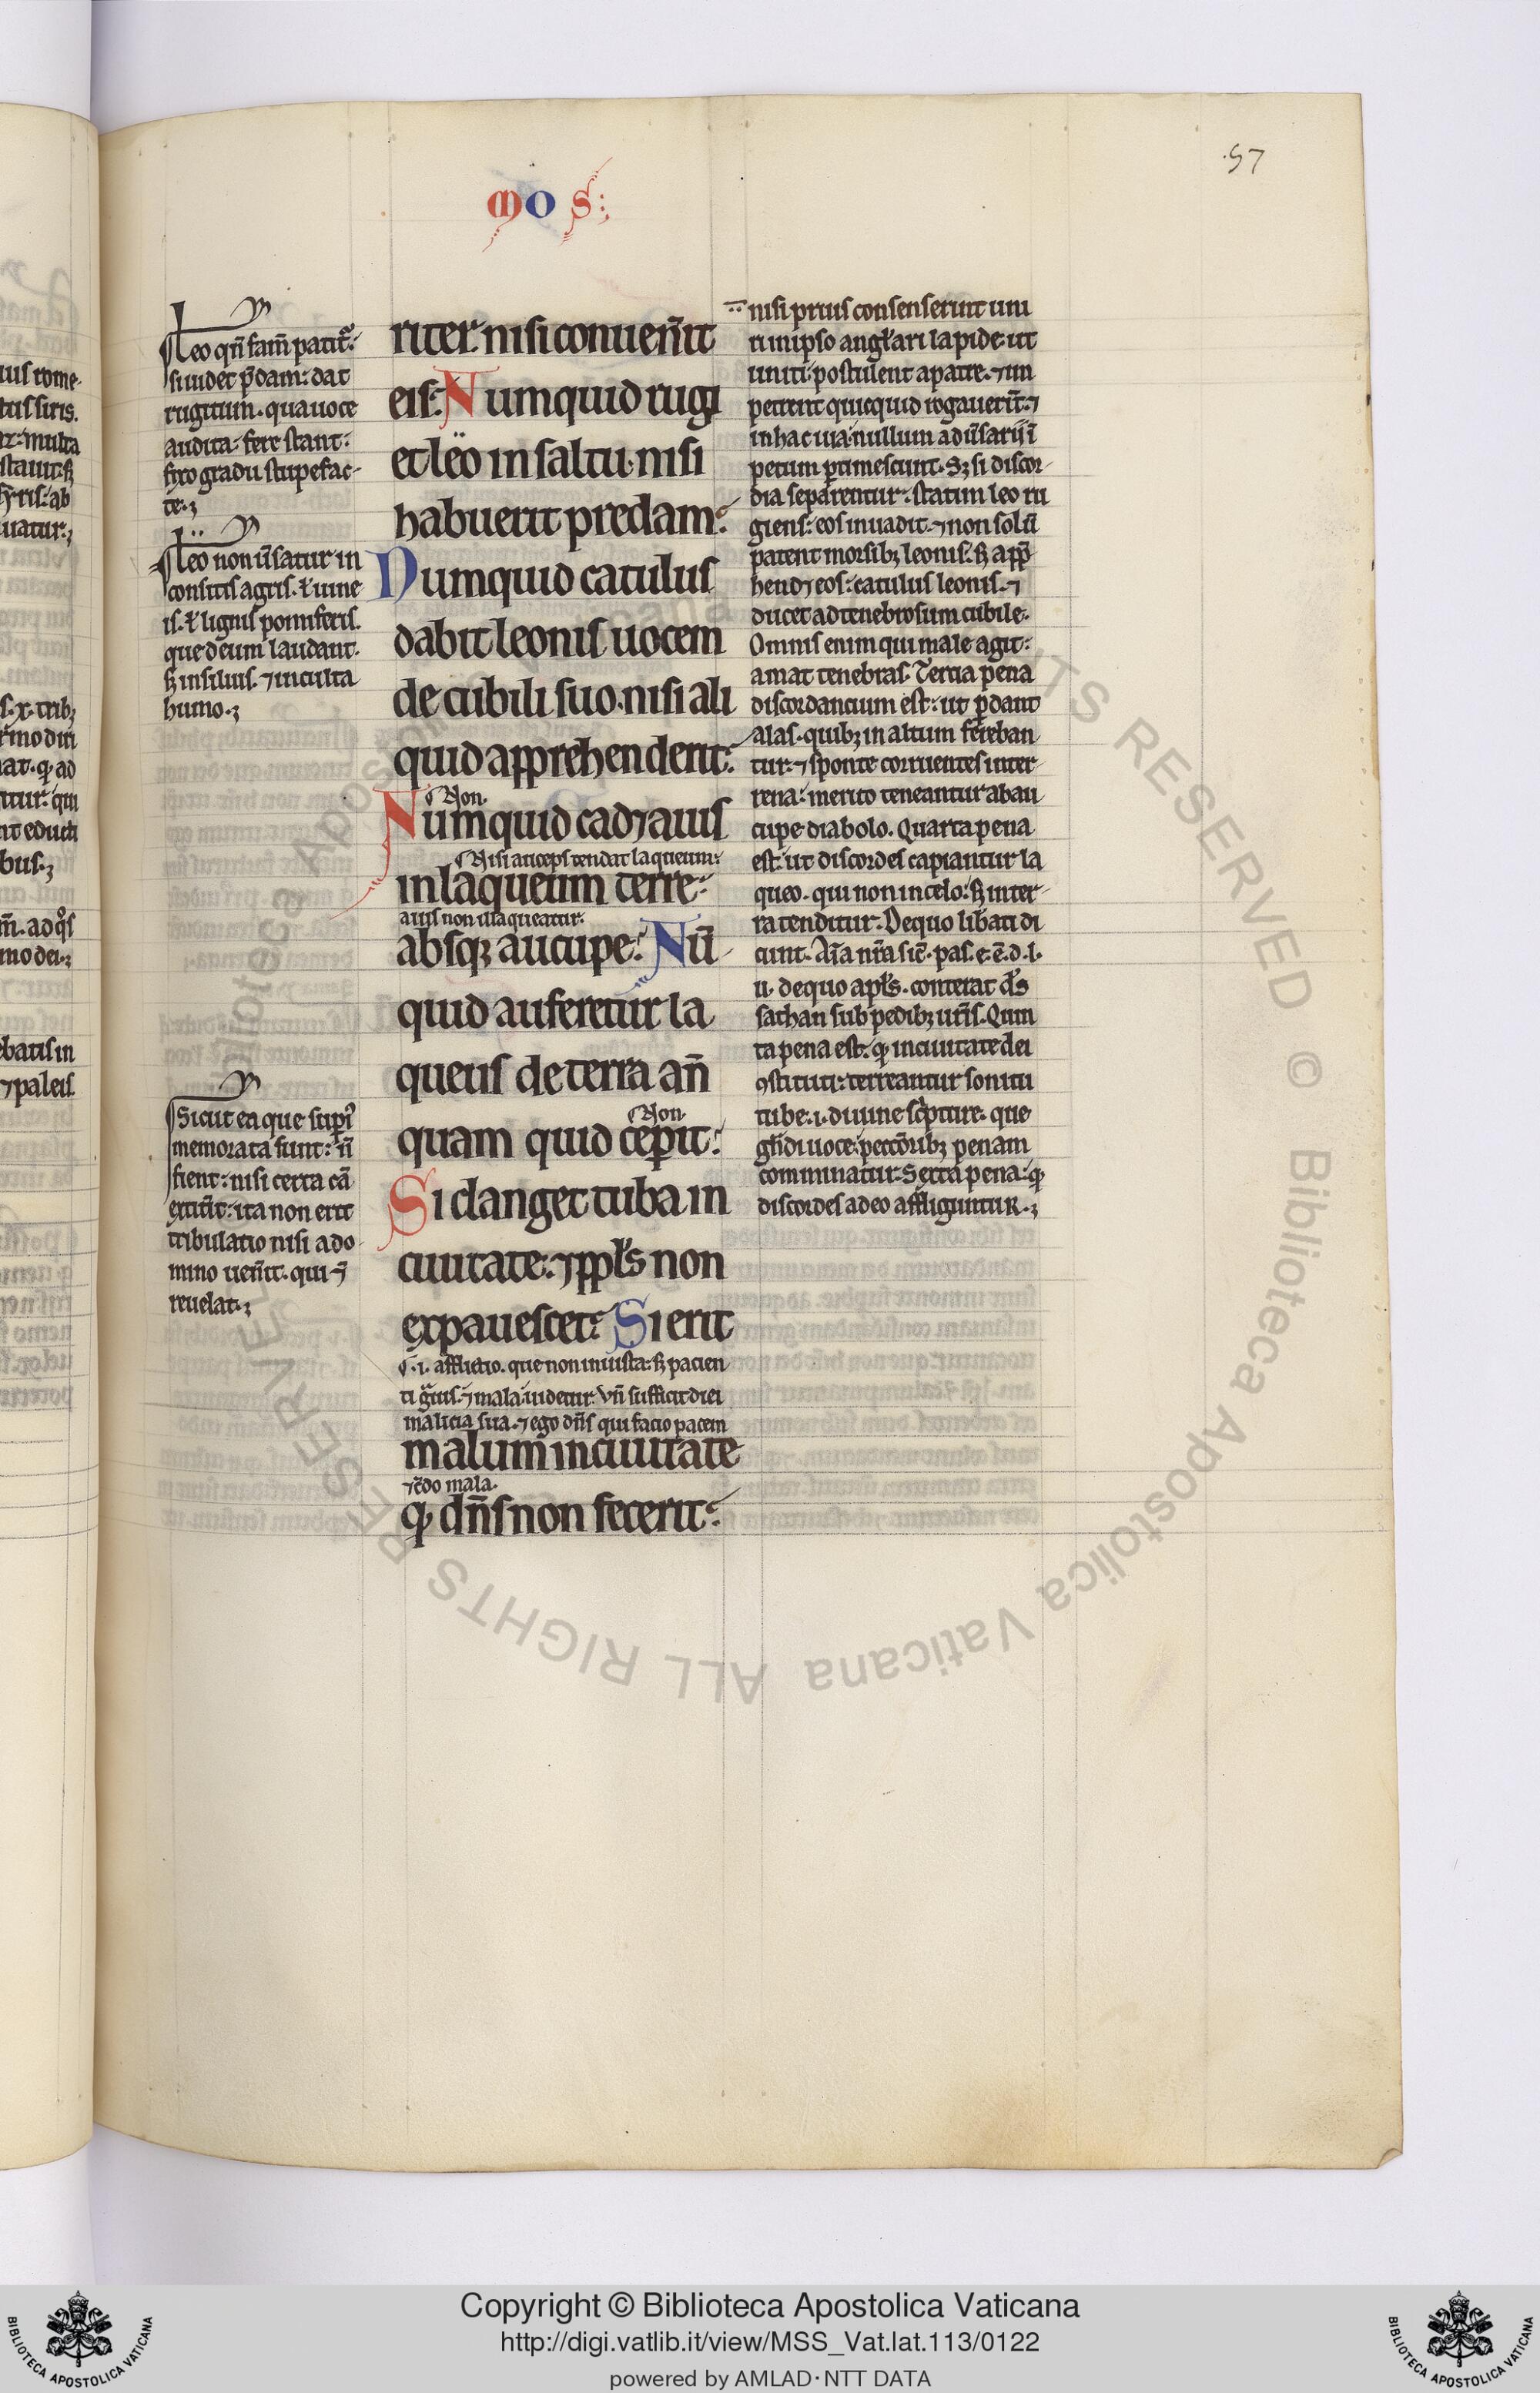 57
MOS:
Leo qn̄ fam̄ patit᷑:
si uidet p̄dam: dat
rugitum. qua uoce
audita: fere stant:
fixo gradu stupefac-
te.;
Leo non ūsatur in
consitis agris. ł uine
is. ł lignis pomiferis.
que deum laudant.
sꝫ in siluis. ⁊ inculta
humo.;
Sicut ea que supͥ
memorata sunt: n̄
fient: nisi certa cā
extit̄it: ita non erit
tribulatio nisi a do
mino uen̄it. qui ⁊
reuelat.;
riter. nisi conuen̄it
eis: Numquid rugi
et leo in saltu. nisi
habuerit predam:
Numquid catulus
dabit leonis uocem
de cubili suo. nisi ali
quid apprehenderit:
Non.
Numquid cad⁊ auis
Nisi auceps tendat laqueum:
in laqueum terre:
auis non illaqueatur.
absqꝫ aucupe: Nū
quid auferetur la
queus de terra an̄
Non.
quam quid ceperit:
Si clanget tuba in
ciuitate: ⁊ ppłs non
expauescet: Si erit
.i. afflictio. que non iniusta: sꝫ pacien
ti g̃uis. ⁊ mala uidetur. Vn̄ sufficit diei
malicia sua. ⁊ ego dn̄s qui facio pacem
malum in ciuitate
⁊ c̄do mala.
q̨ dn̄s non fecerit:
nisi prius consenserint uni
ri in ipso angłari lapide. ut
uniti postulent a patre. ⁊ im
petrent quicquid rogauerīt. ⁊
in hac uia nullum adūsarij ī
petum ꝑtimescunt. Sꝫ si discor
dia separentur: statim leo ru
giens: eos inuadit. ⁊ non solū
patent morsibꝫ leonis. sꝫ app̄
hend⁊ eos: catulus leonis. ⁊
ducet ad tenebrosum cubile.
Omnis enim qui male agit:
amat tenebras. Tertia pena
discordancium est: ut p̄dant
alas. quibꝫ in altum fereban
tur. ⁊ sponte corruentes in ter
rena: merito teneantur ab au
cupe diabolo. Quarta pena
est: ut discordes capiantur la
queo. qui non in celo: sꝫ in ter
ra tenditur. De quo lib̄ati di
cunt. Aīa nr̄a sic̄. pas. e. ē. d. l.
u. de quo apłs. conterat ds̄
sathan sub pedibꝫ ur̄is. Quin
ta pena est: q̨ in ciuitate dei
ꝯstituti: terreantur sonitu
tube .i. diuine sc̄pture. que
ḡndi uoce: peccōribꝫ penam
comminatur. Sexta pena: q̨
discordes adeo affliguntur.;
ius rome
tus siris.
ar: multa
uatur.;
nt educti
bus.;
mo dei.;
ebatis in
⁊ paleis.
Copyright © Biblioteca Apostolica Vaticana
http://digi.vatlib.it/view/MSS_Vat.lat.113/0122
powered by AMLAD·NTT DATA
BIBLIOTECA APOSTOLICA VATICANA
BIBLIOTECA APOSTOLICA VATICANA
© Biblioteca Apostolica Vaticana ALL RIGHTS RESERVED